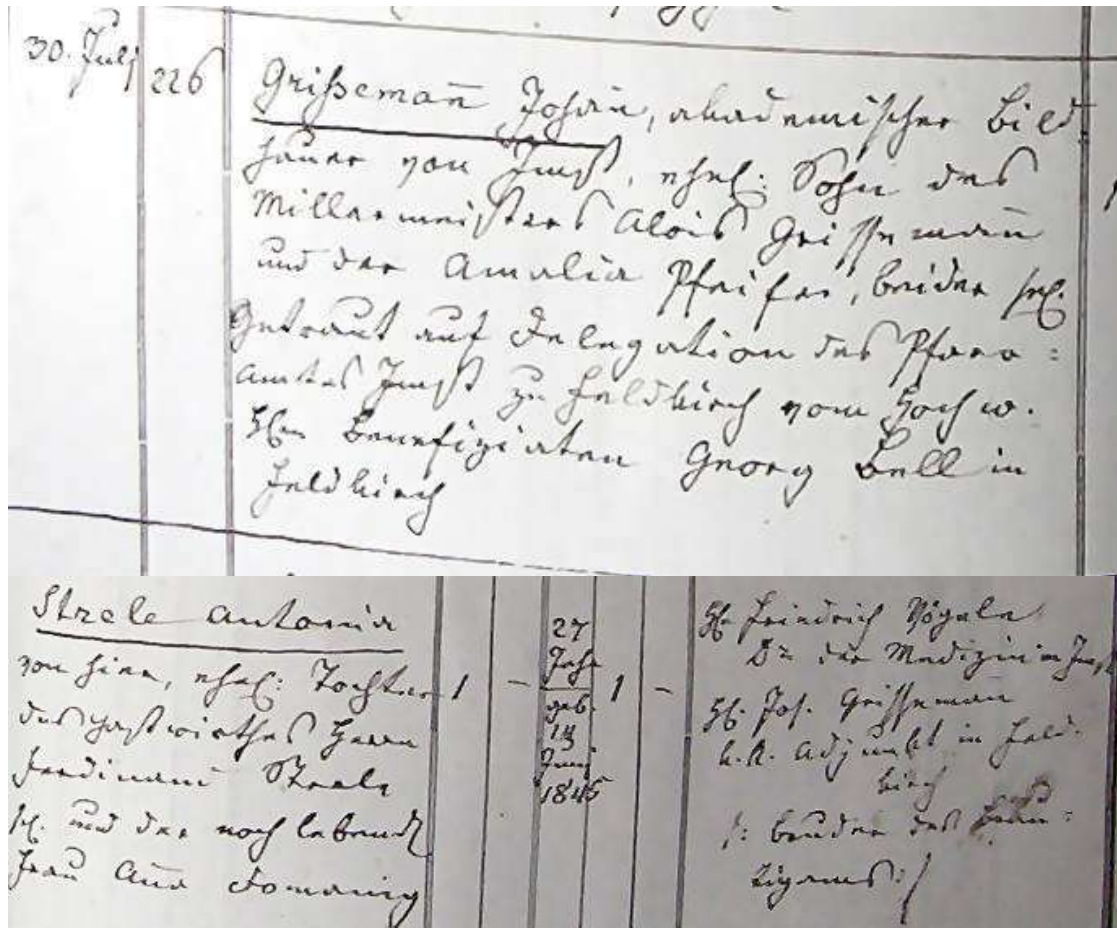 30. Julj
226
Grißeman̄ Johan̄, akademischer Bild
hauer von Imst, ehel: Sohn des
Millermeisters Alois Grissemann̄
und der Amalia Pfeifer, beider sel.
Getraut auf Delegation des Pfarr=
Amtes Imst zu Feldkirch vom Hochw.
H̄h. Benefiziaten Georg Bell in
Feldkirch
Strele Antonia
von hier, ehel: Tochter
des Gastwirthes Herrn
Ferdinand Strele
sel. und der noch lebend
Frau An̄a Domanig
1
—
27
Jahr
geb.
13
Juni
1845
1
—
H. Friedrich Vögele
Dr der Medizin in Imst
H. Jos. Grisseman̄
k.k. Adjunkt in Feld-
kirch
/: Bruder des Bräu=
tigams :/